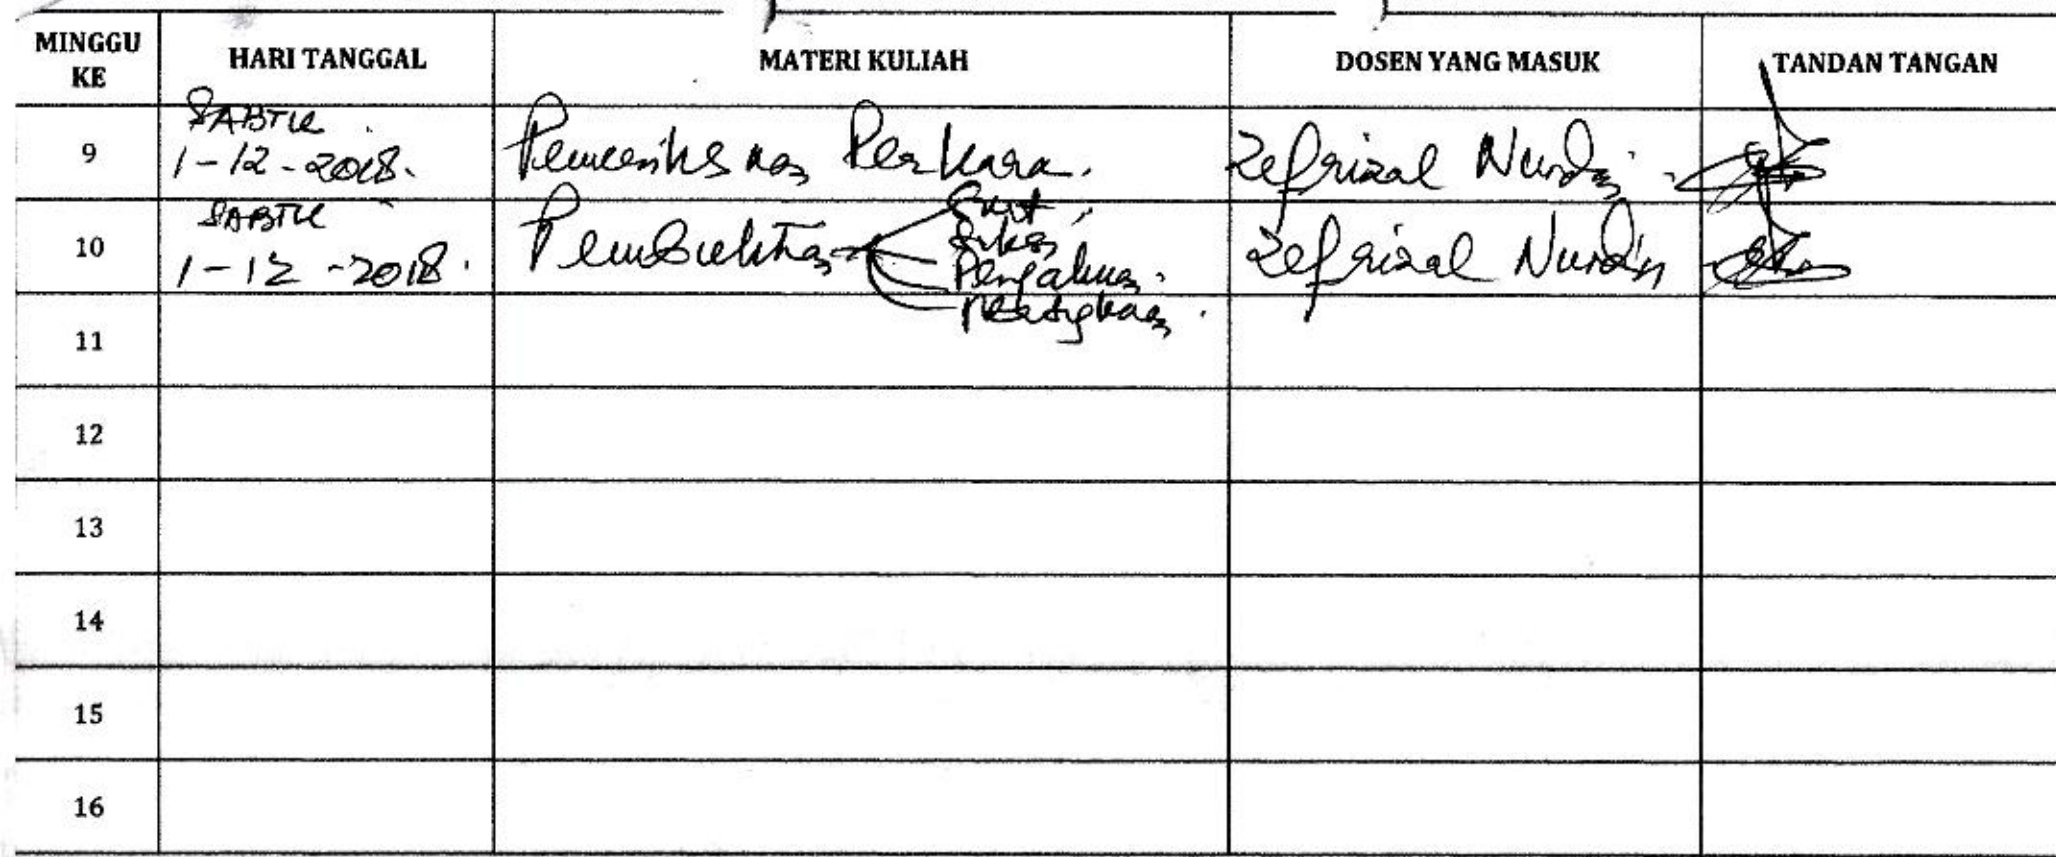 MINGGU KE HARI TANGGAL MATERI KULIAH DOSEN YANG MASUK TANDAN TANGAN
9 SABTU 1-12-2018. Pemeriksaan Perkara. Zefrizal Nurdin
10 SABTU 1-12-2018. Pembuktian Zefrizal Nurdin
Pengakuan.
11
12
13
14
15
16